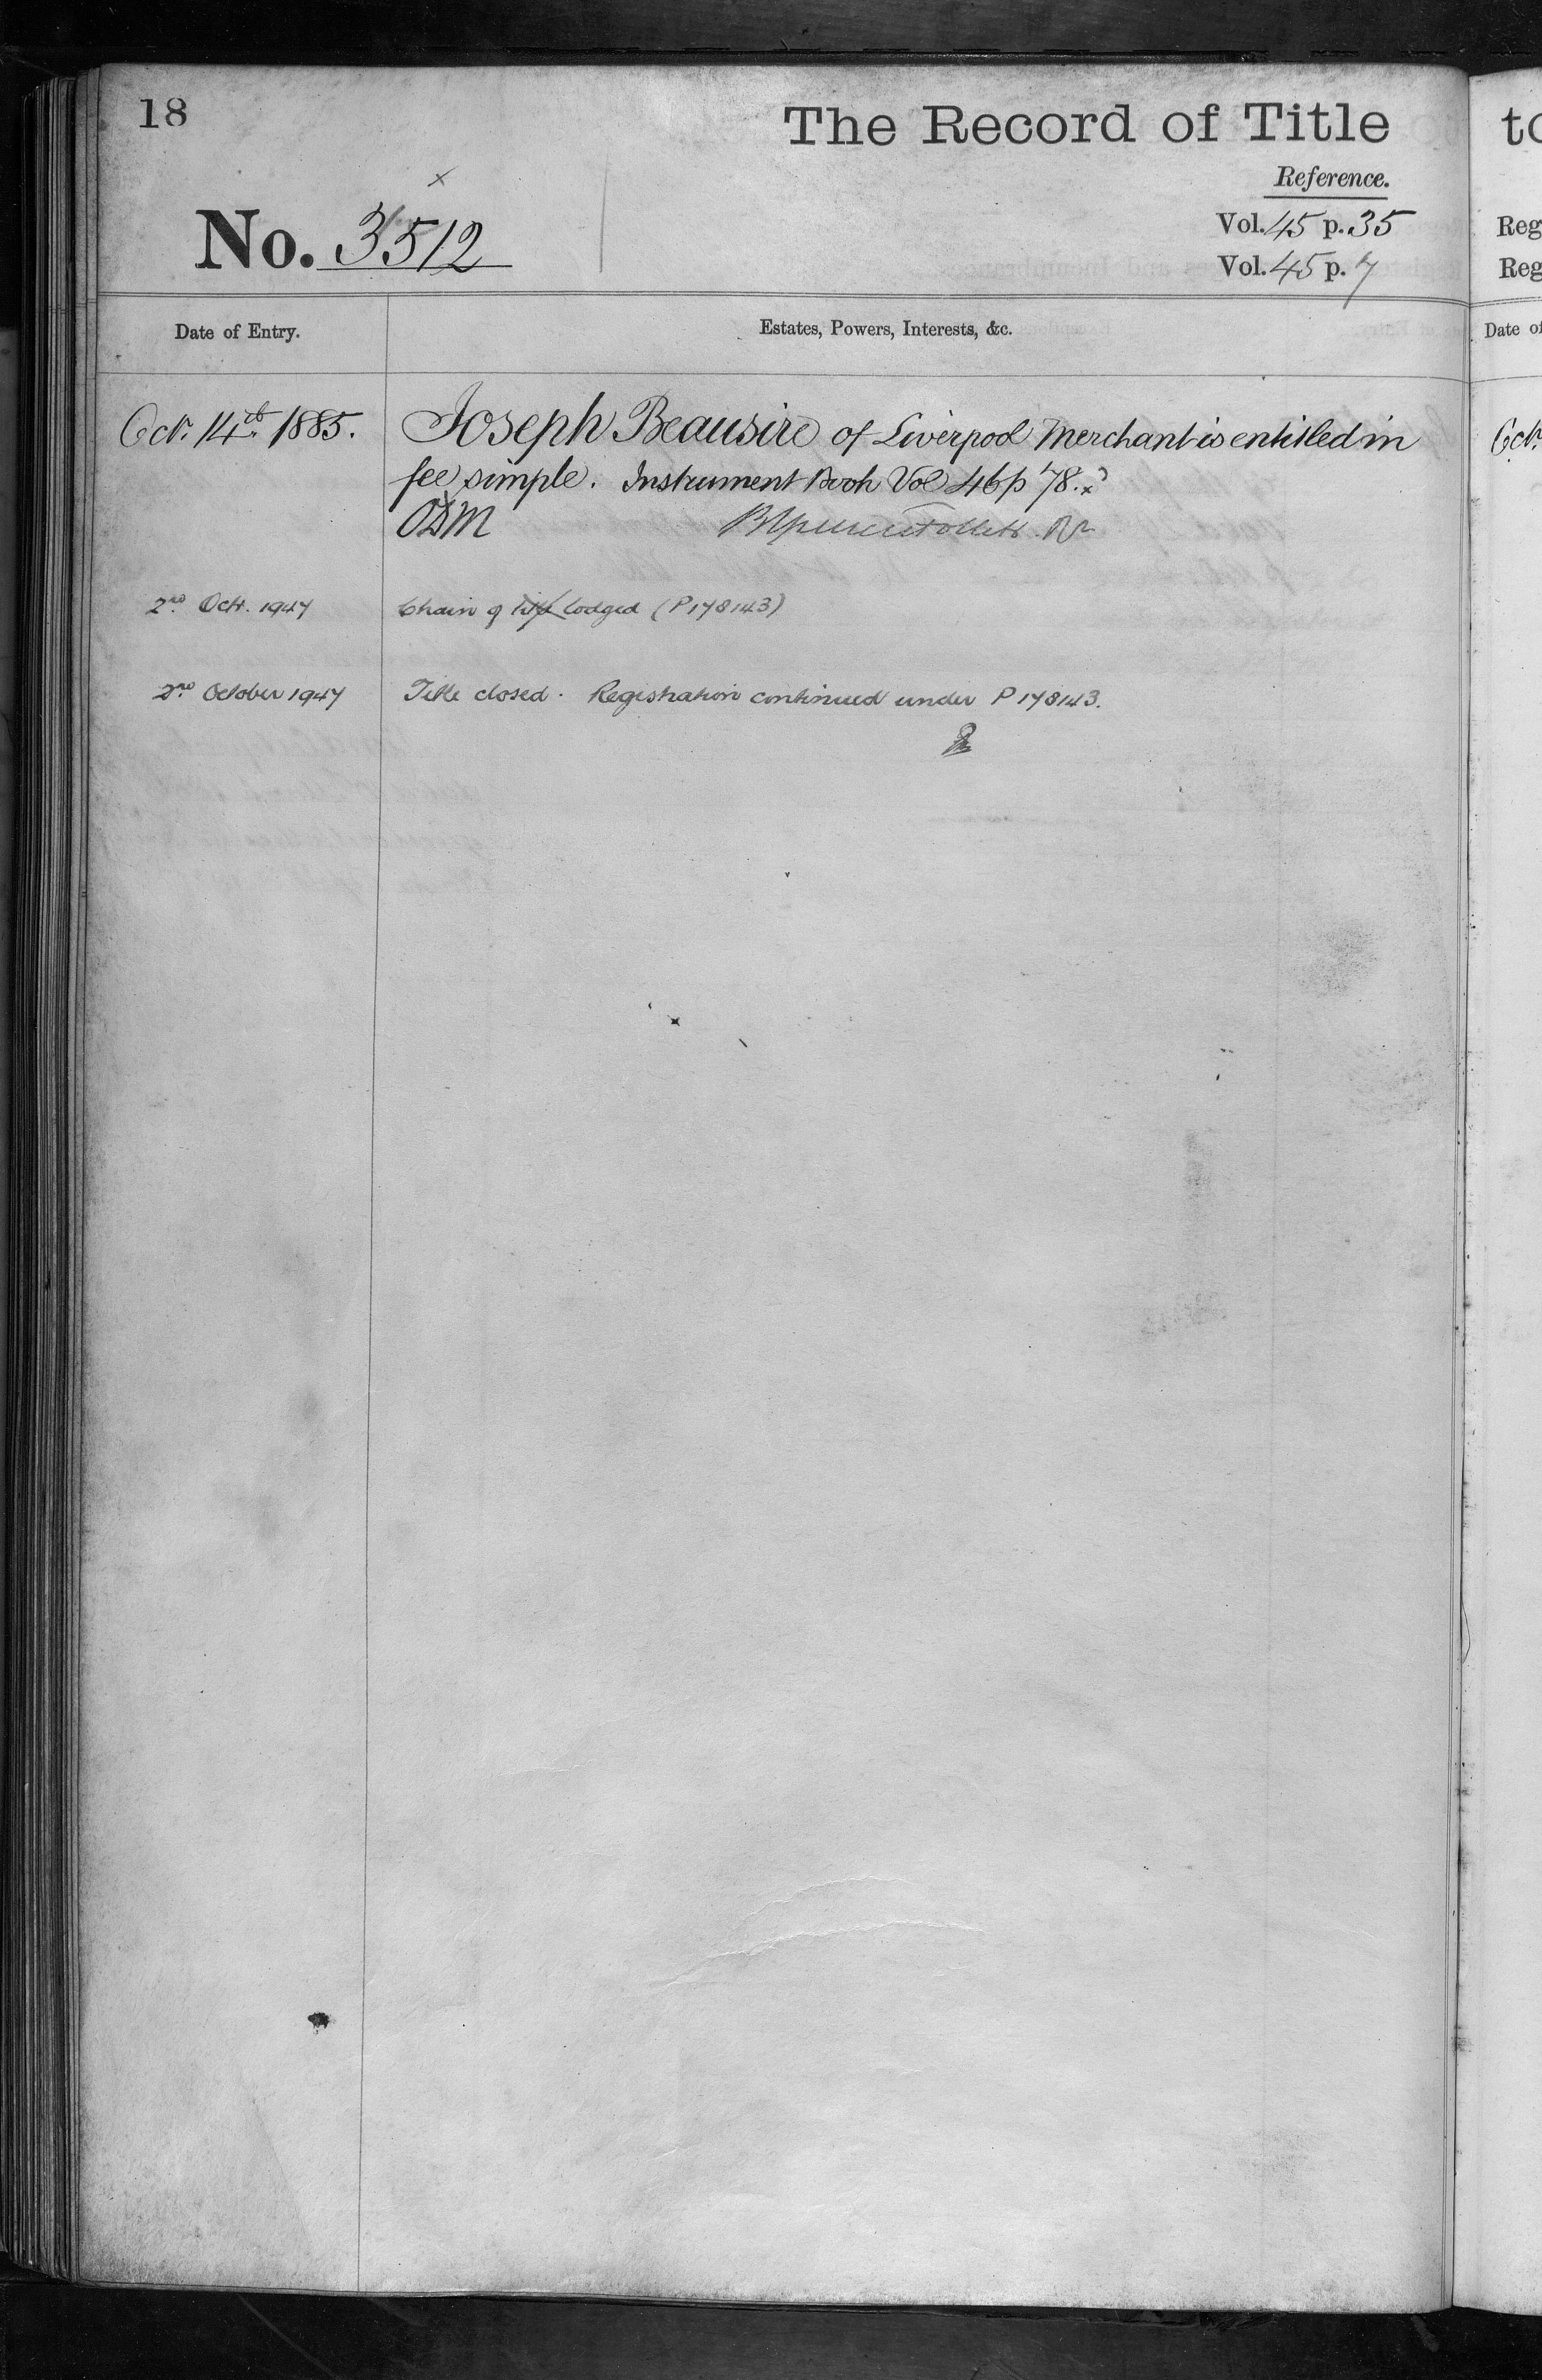 18
The Record of Title
Reference.
No. 3512
Vol. 45 p. 35
Vol. 45 p. 7
Date of Entry.
Estates, Powers, Interests, &c.
Oct. 14th 1885.
Joseph Beausire of Liverpool Merchant is entitled in
fee simple. Instrument Book Vol 46 p 78.
2nd Oct. 1947
Chain of title lodged (P178143)
2nd October 1947
Title closed. Registration continued under P178143.
to
Reg
Reg
Date of
Oct.